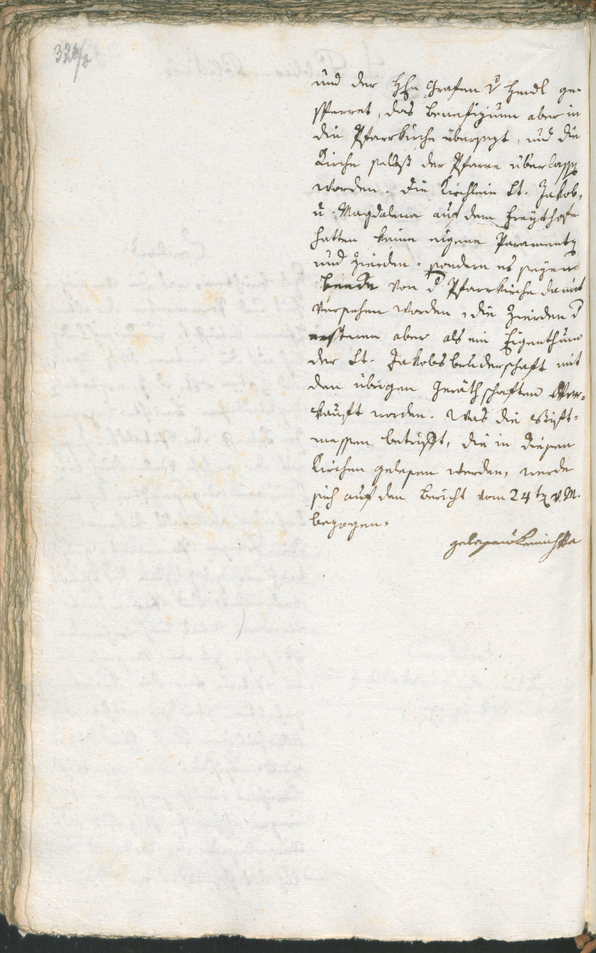 324/2
und der Hh Grafen v Hendl ge-
sperret, das Benefizium aber in
die Pfarrkirche übersezt, und die
Kirche selbst der Pfarre überlassen
worden. Die Kirchlein St. Jakob,
u. Magdalena auf dem Freythofe
hatten keine eigene Paramente
und Zierden, sondern es seyen
beede von d Pfarrkirche damit
versehen worden, die Zierden d
ersteren aber als ein Eigenthum
der St. Jakobsbruderschaft mit
den übrigen Geräthschaften ver-
kauft worden. Was die Stift-
messen betrifft, die in diesen
Kirchen gelesen werden, werde
sich auf den Bericht vom 24 t v. M.
bezogen.